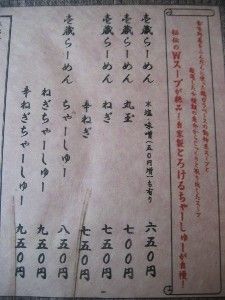 秘伝のWスープが絶品！自家製とろけるちゃーしゅーが自慢！
壱蔵らーめん 六五〇円
※塩、味噌(五〇円増)も有り
壱蔵らーめん 丸玉 七〇〇円
壱蔵らーめん ねぎ 七五〇円
辛ねぎ 七五〇円
壱蔵らーめん ちゃーしゅー 八五〇円
ねぎちゃーしゅー 九五〇円
辛ねぎちゃーしゅー 九五〇円